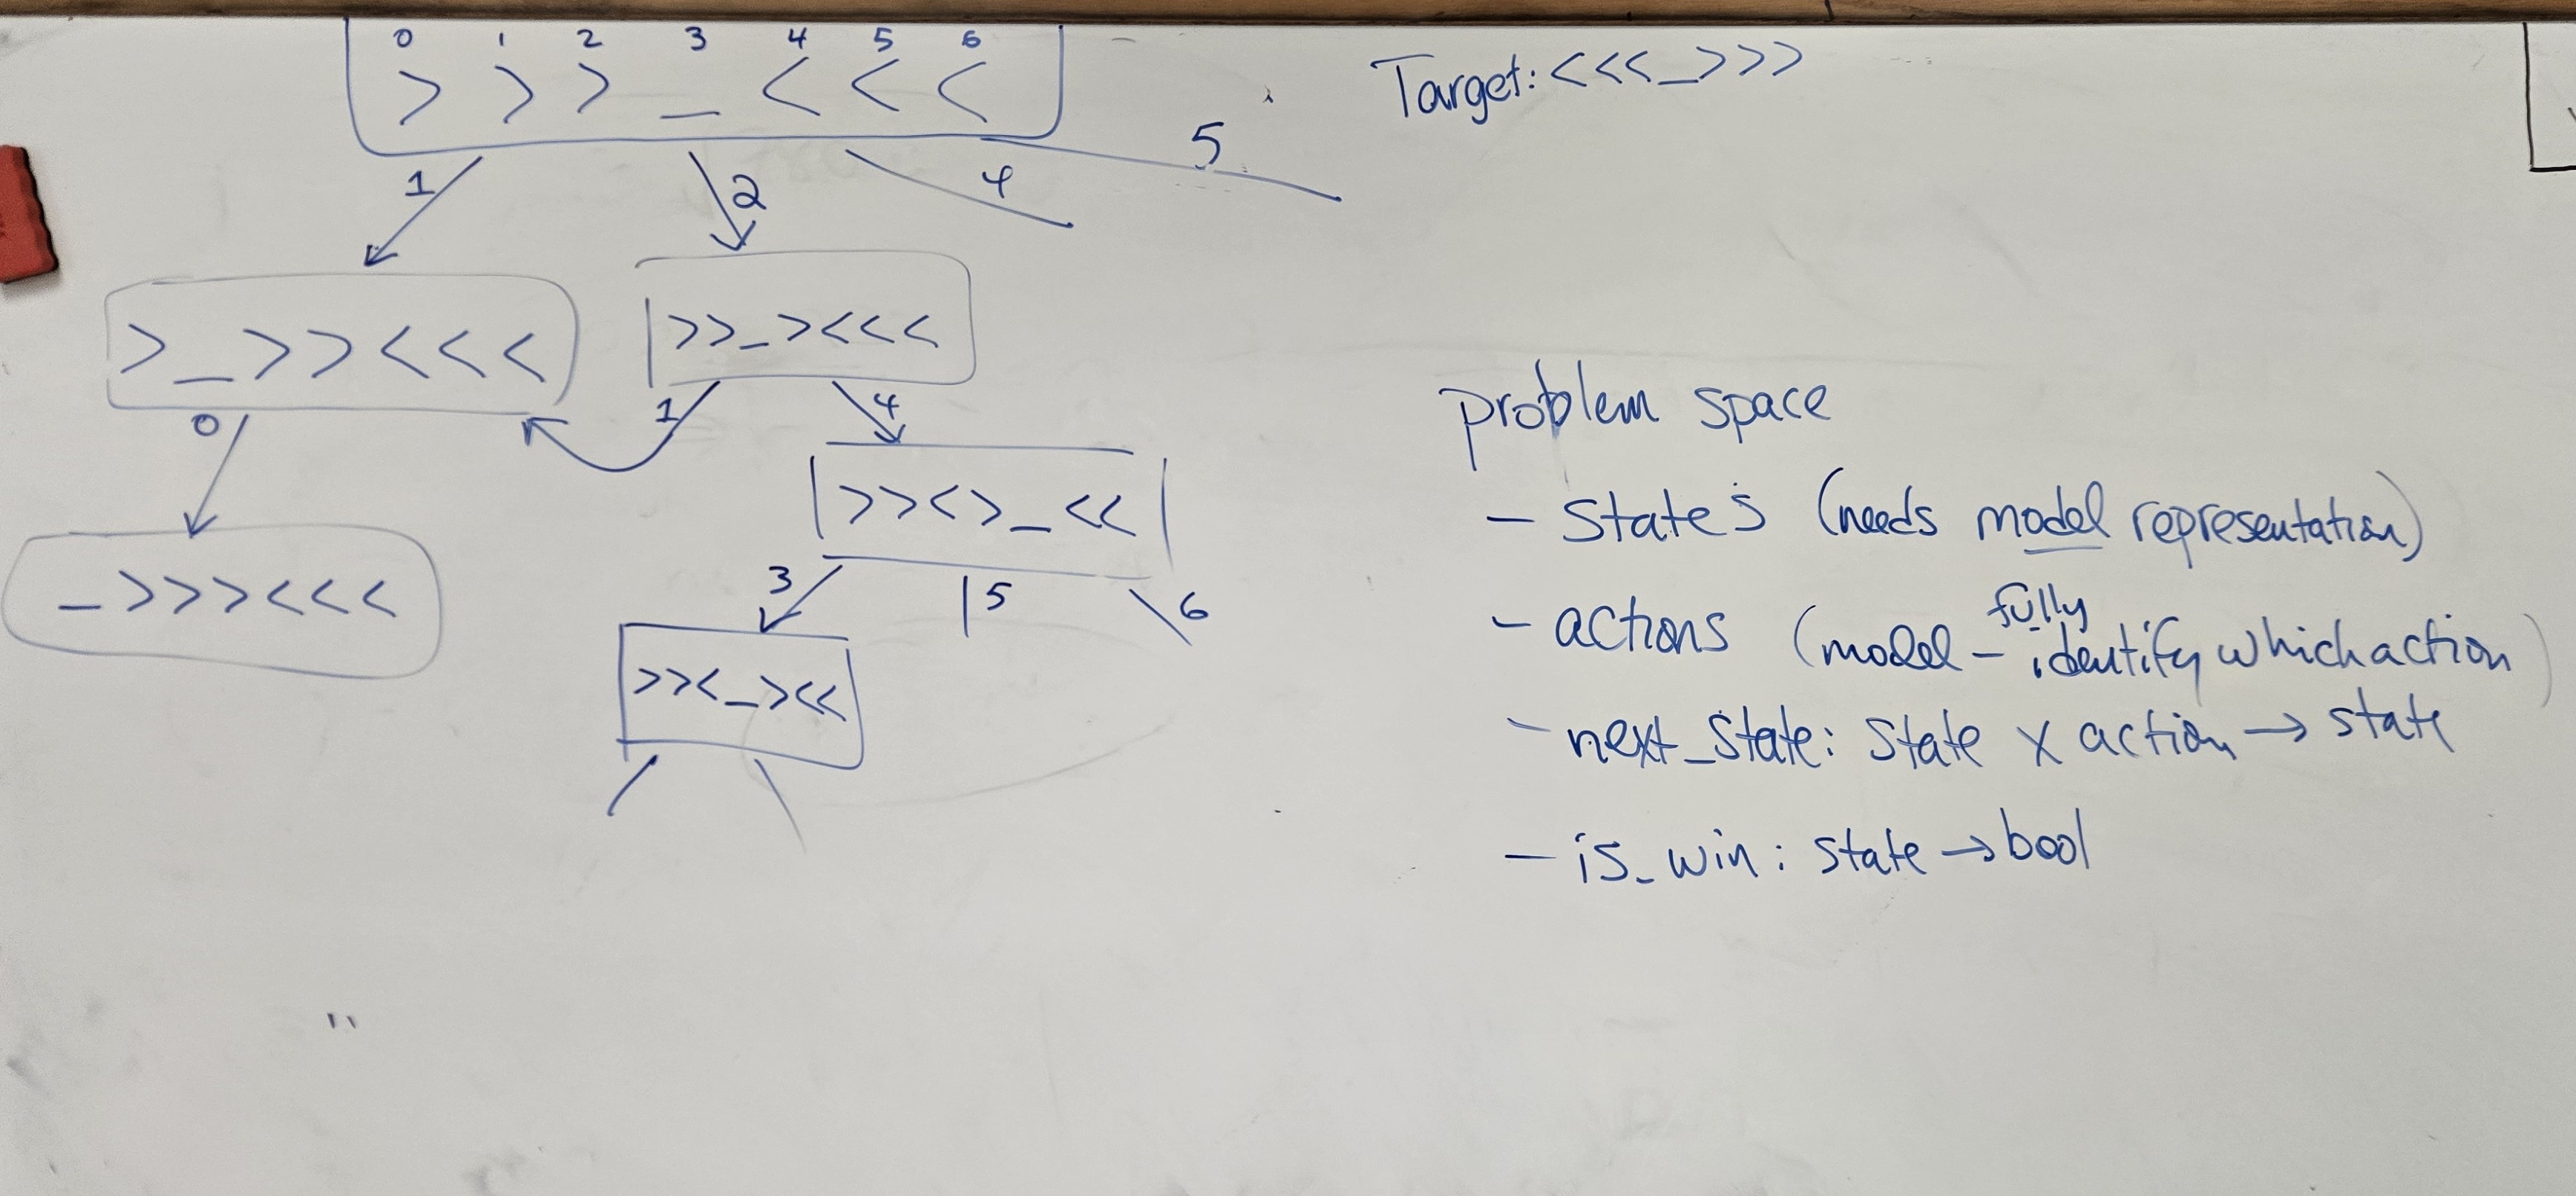 0 1 2 3 4 5 6
> > > _ < < <
Target: <<<_>>>
1 2 4 5
>_>><<<
>>_><<<
0 1 4
>><>_<<
_>>><<<
3 5 6
>><_><<
problem space
- state's (needs model representation)
- actions (model - fully identify which action)
- next_state: state x action → state
- is_win: state → bool